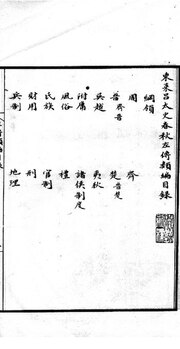 東萊呂太史春秋左傳類編目錄
綱領
周　齊
晉齊晉　楚晉楚
吳越　夷狄
附庸　諸侯制度
風俗　禮
氏族　官制
財用　刑
兵制　地理